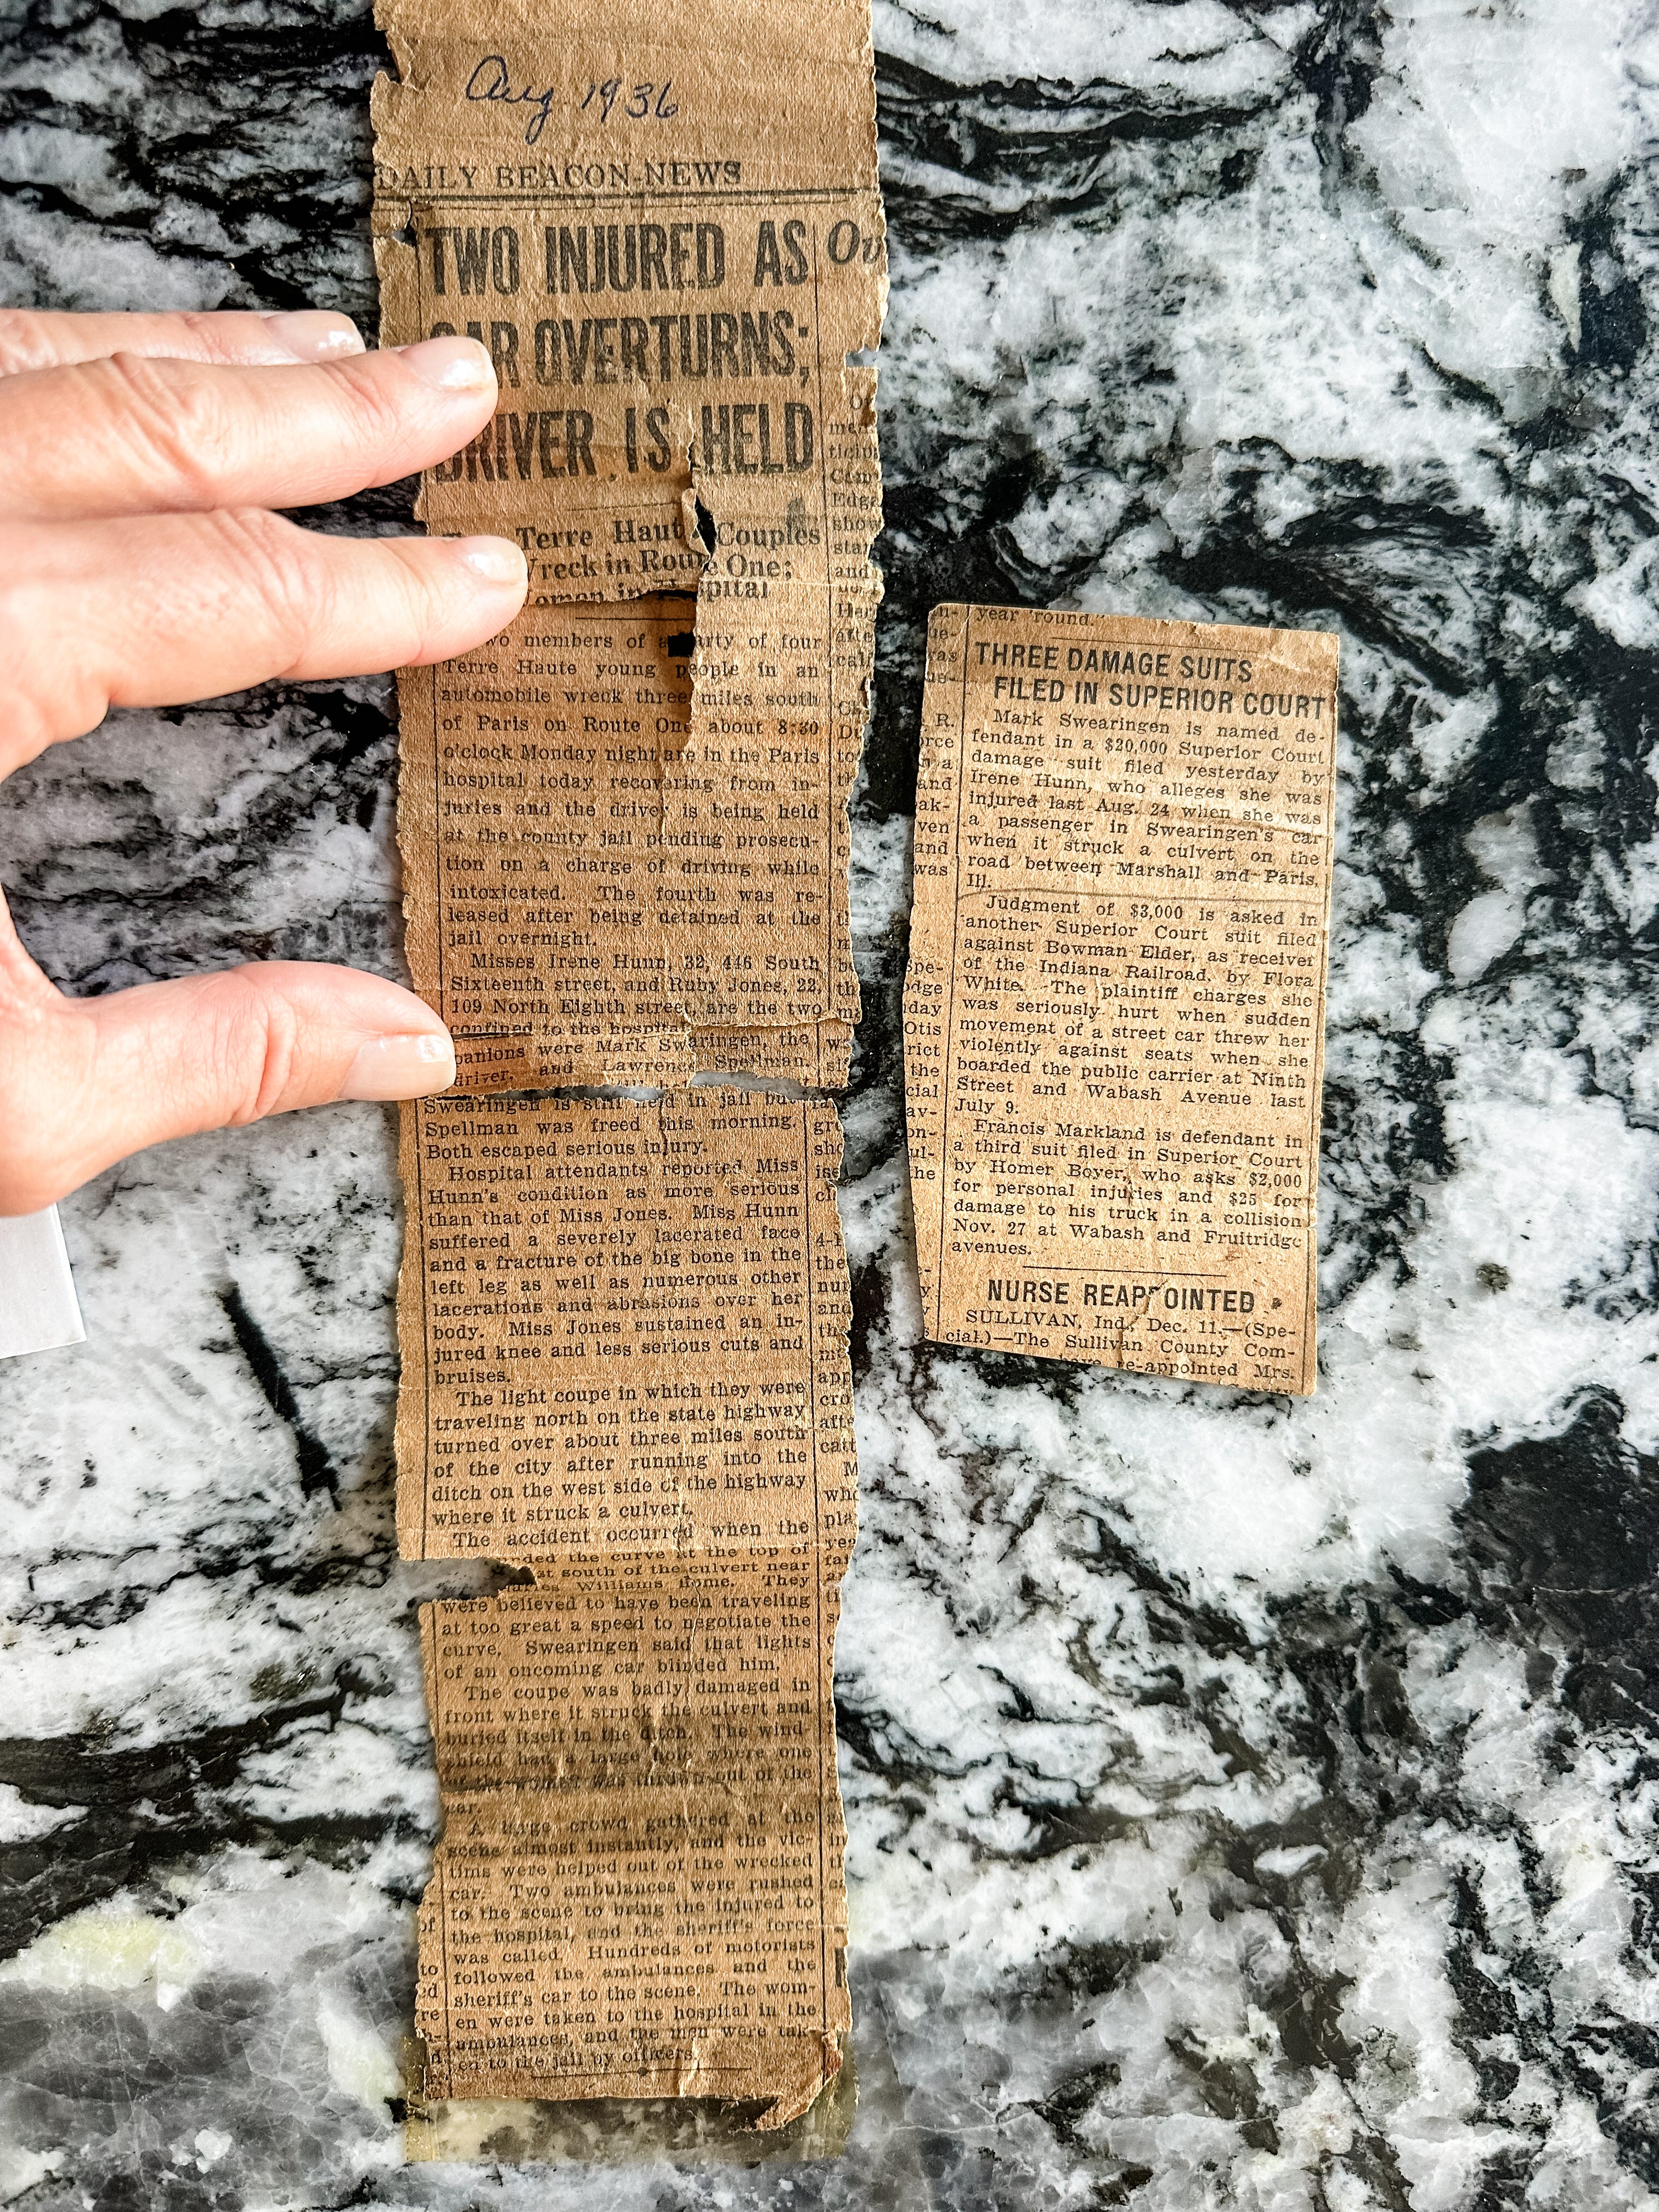 Aug 1936
DAILY BEACON-NEWS
TWO INJURED AS
CAR OVERTURNS;
DRIVER IS HELD
Terre Haute Couples
Wreck in Route One;
Women in Hospital
Two members of a party of four
Terre Haute young people in an
automobile wreck three miles south
of Paris on Route One about 8:30
o'clock Monday night are in the Paris
hospital today recovering from in-
juries and the driver is being held
at the county jail pending prosecu-
tion on a charge of driving while
intoxicated. The fourth was re-
leased after being detained at the
jail overnight.
Misses Irene Hunn, 32, 446 South
Sixteenth street, and Ruby Jones, 22,
109 North Eighth street, are the two
confined to the hospital.
panions were Mark Swaringen, the
driver, and Lawrence Spellman.
Swearingen is still held in jail but
Spellman was freed this morning.
Both escaped serious injury.
Hospital attendants reported Miss
Hunn's condition as more serious
than that of Miss Jones. Miss Hunn
suffered a severely lacerated face
and a fracture of the big bone in the
left leg as well as numerous other
lacerations and abrasions over her
body. Miss Jones sustained an in-
jured knee and less serious cuts and
bruises.
The light coupe in which they were
traveling north on the state highway
turned over about three miles south
of the city after running into the
ditch on the west side of the highway
where it struck a culvert.
The accident occurred when the
nded the curve at the top of
at south of the culvert near
Williams home. They
were believed to have been traveling
at too great a speed to negotiate the
curve. Swearingen said that lights
of an oncoming car blinded him.
The coupe was badly damaged in
front where it struck the culvert and
buried itself in the ditch. The wind-
shield had a large hole where one
of the women was thrown out of the
car.
A large crowd gathered at the
scene almost instantly, and the vic-
tims were helped out of the wrecked
car. Two ambulances were rushed
to the scene to bring the injured to
the hospital, and the sheriff's force
was called. Hundreds of motorists
followed the ambulances and the
sheriff's car to the scene. The wom-
en were taken to the hospital in the
ambulances, and the men were tak-
en to the jail by officers.
Ou
year 'round."
THREE DAMAGE SUITS
FILED IN SUPERIOR COURT
Mark Swearingen is named de-
fendant in a $20,000 Superior Court
damage suit filed yesterday by
Irene Hunn, who alleges she was
injured last Aug. 24 when she was
a passenger in Swearingen's car
when it struck a culvert on the
road between Marshall and Paris,
Ill.
Judgment of $3,000 is asked in
another Superior Court suit filed
against Bowman Elder, as receiver
of the Indiana Railroad, by Flora
White. The plaintiff charges she
was seriously hurt when sudden
movement of a street car threw her
violently against seats when she
boarded the public carrier at Ninth
Street and Wabash Avenue last
July 9.
Francis Markland is defendant in
a third suit filed in Superior Court
by Homer Boyer, who asks $2,000
for personal injuries and $25 for
damage to his truck in a collision
Nov. 27 at Wabash and Fruitridge
avenues.
NURSE REAPPOINTED
SULLIVAN, Ind., Dec. 11.—(Spe-
cial.)—The Sullivan County Com-
have re-appointed Mrs.